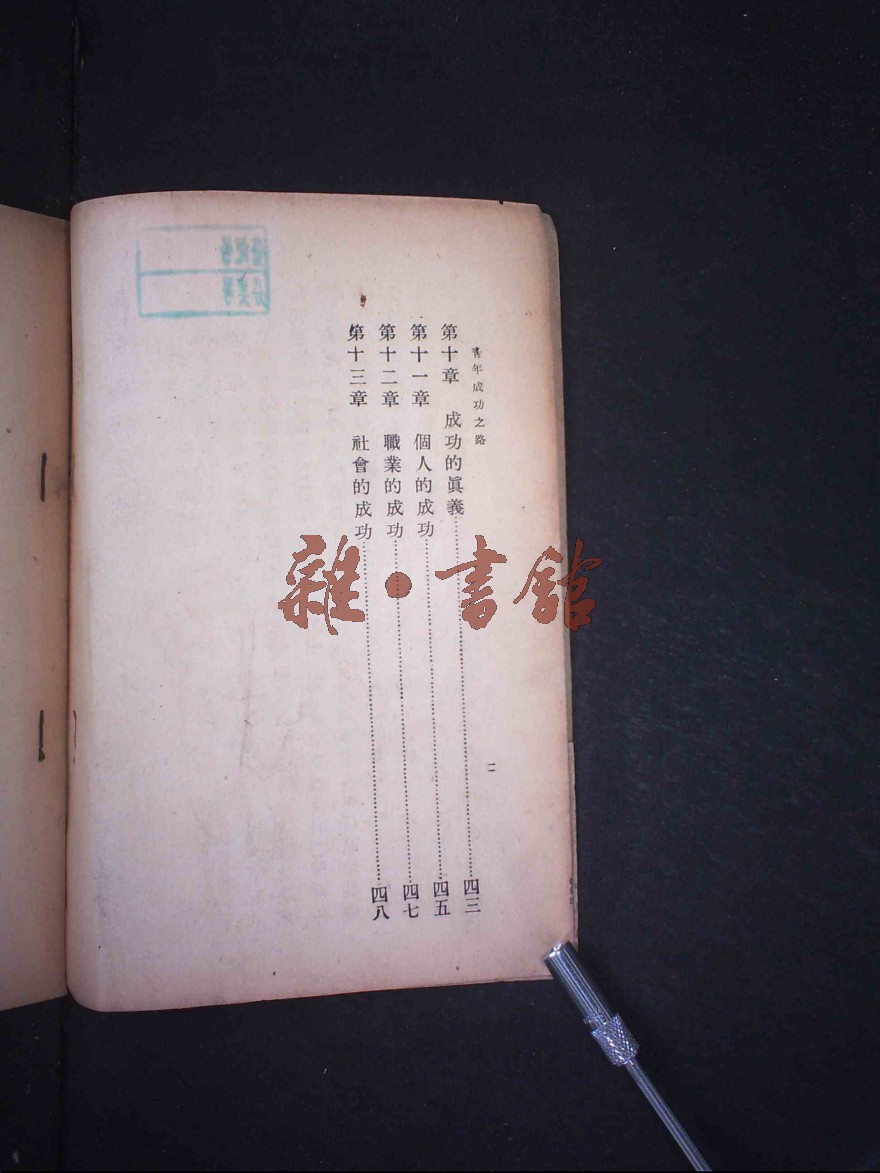 青年成功之路
二
第十章　成功的眞義……四三
第十一章　個人的成功……四五
第十二章　職業的成功……四七
第十三章　社會的成功……四八
雜·書館